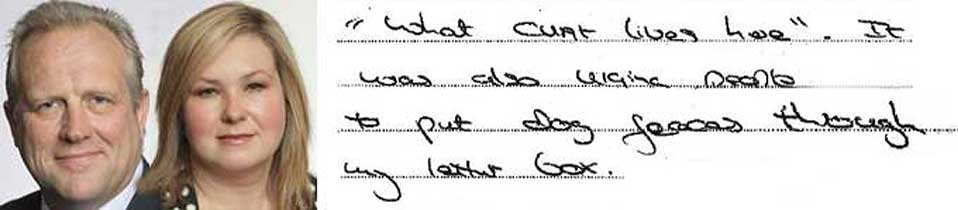 "What CUNT lives here". It
was also urging people
to put dog feaces through
my letter box.